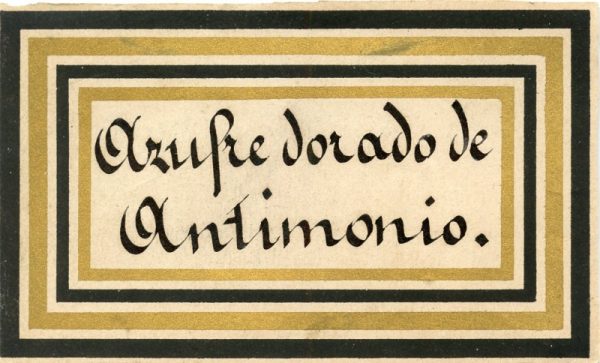 Azufre dorado de
Antimonio.